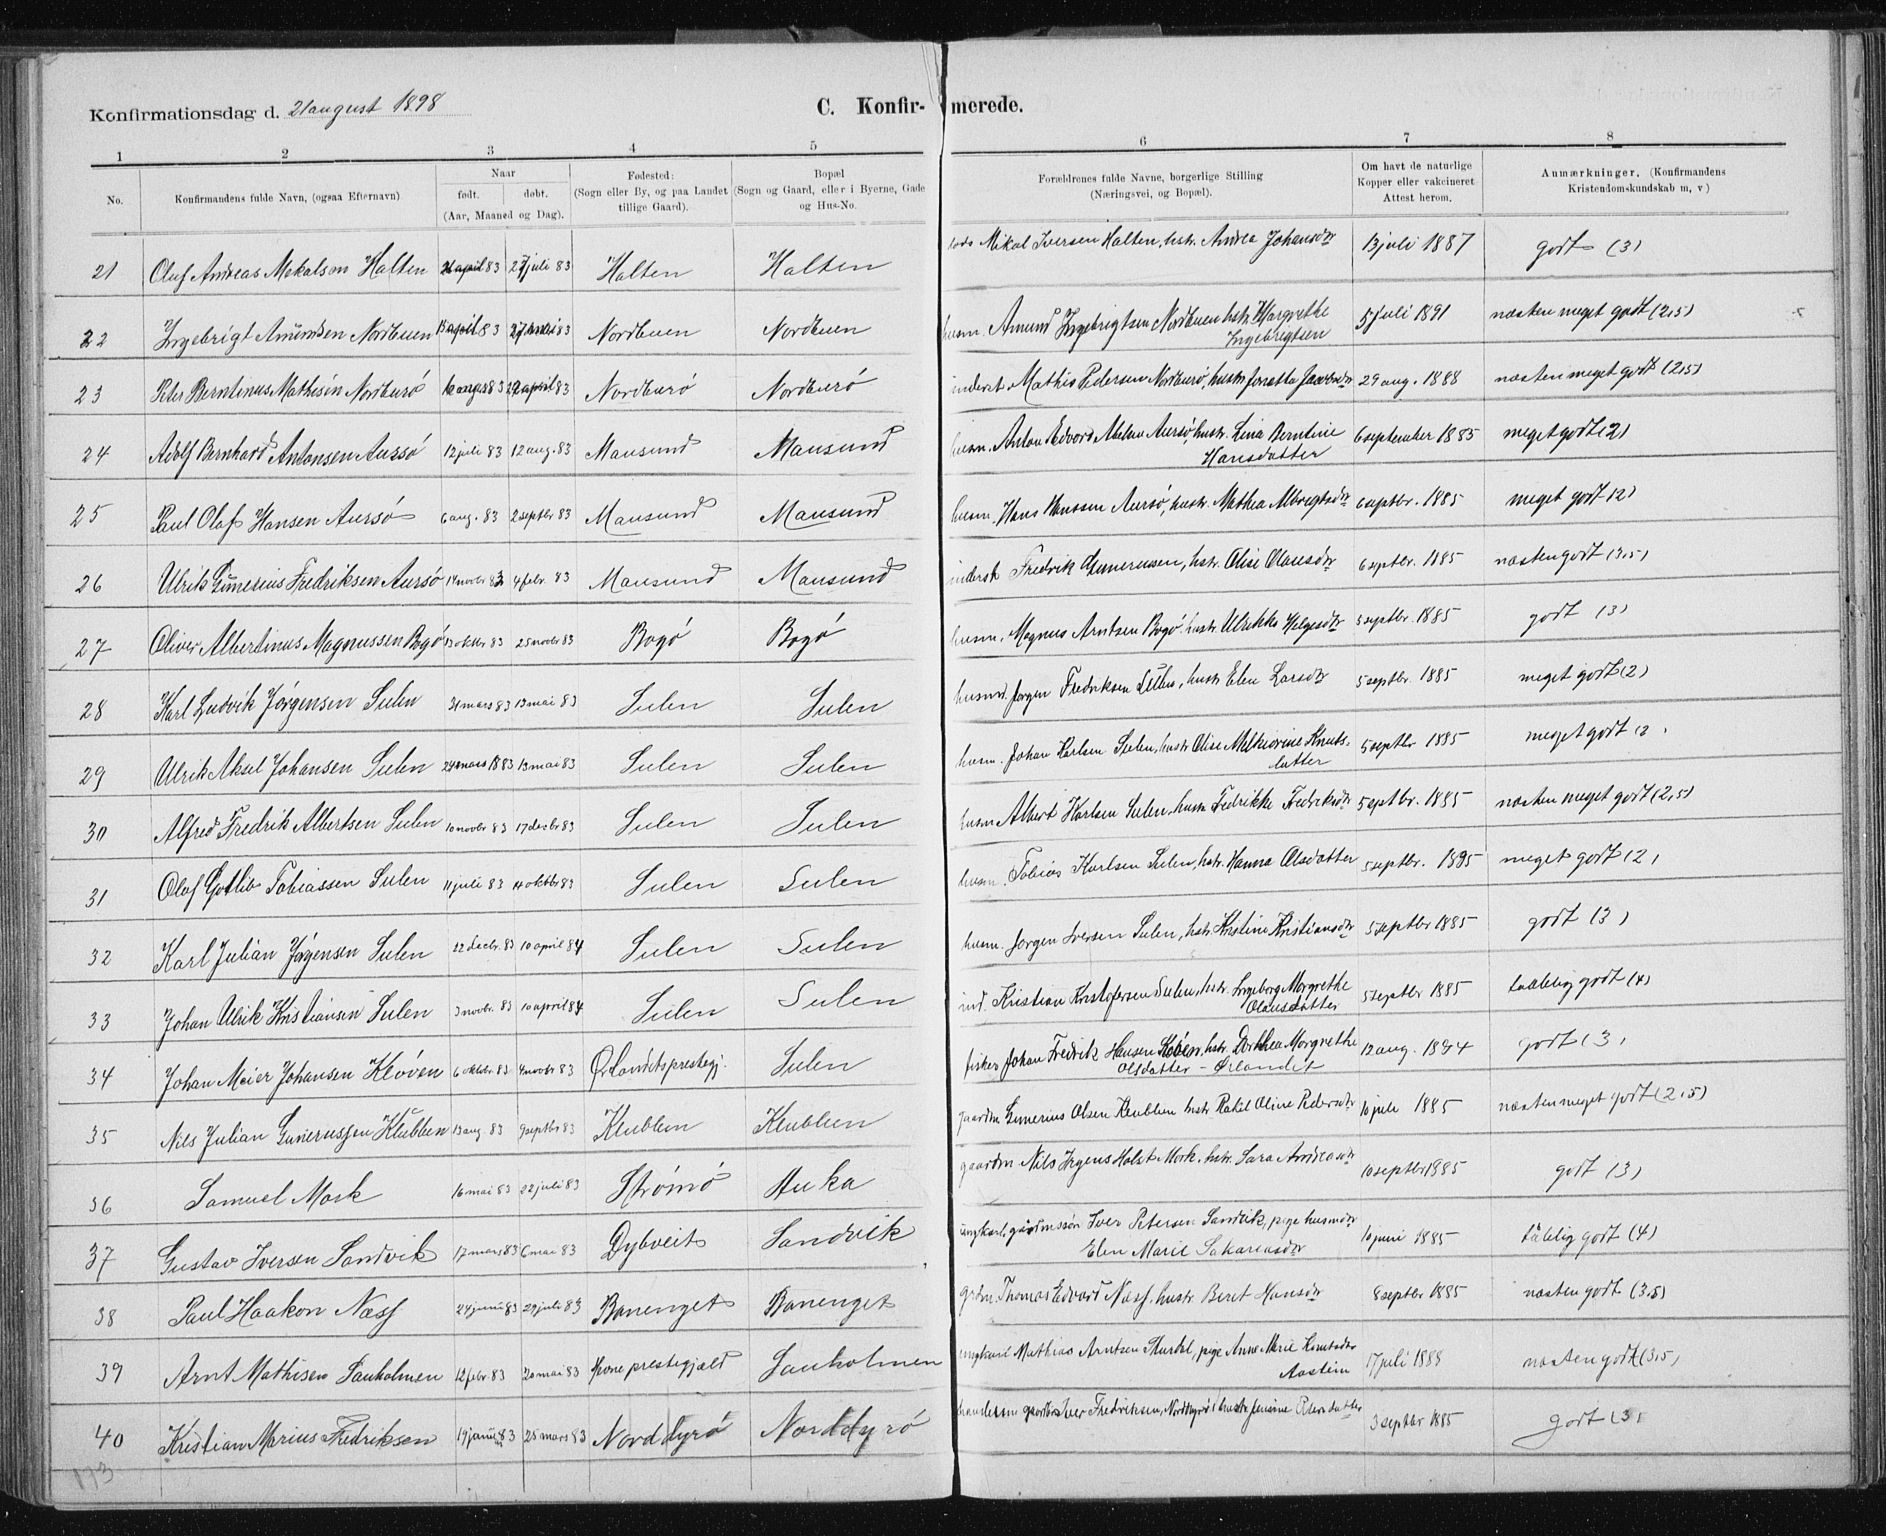 Konfirmationsdag d. 21 august 1898
C. Konfir- merede.
1 2 3 4 5 6 7 8
No. Konfirmandens fulde Navn, (ogsaa Efternavn) Naar født. døbt. (Aar, Maaned og Dag). Fødested: (Sogn eller By, og paa Landet tillige Gaard). Bopæl (Sogn og Gaard, eller i Byerne, Gade og Hus-No. Forældrenes fulde Navne, borgerlige Stilling (Næringsvei, og Bopæl). Om havt de naturlige Kopper eller vakcineret Attest herom. Anmærkninger, (Konfirmandens Kristendomskundskab m, v)
21 Oluf Andreas Mekalsen Halten april 83 27 juli 83 Halten Halten Mikal Iversen Halten, hstr. Andrea Johansdtr 13 juli 1887 godt (3)
22 Ingebrigt Amundsen Nordbuen april 83 83 Nordbuen Nordbuen husm. Amund Ingebrigtsen Nordbuen hstr. Margrethe Ingebrigtsen 5 juli 1891 næsten meget godt (2,5)
23 Peter Berntinus Mathisen Norburö 83 april 83 Nordburö Nordburö inderst Mathis Pedersen Nordburö, hustr Jonetta 29 aug. 1888 næsten meget godt (2,5)
24 Adolf Bernhard Antonsen Aursö 12 juli 83 12 aug. 83 Mausund Mausund husm. Anton Edvard Aursö, hustr. Lina Berntine Hansdatter 6 september 1885 meget godt (2)
25 Paul Olaf Hansen Aursö 6 aug. 83 2 septbr 83 Mausund Mausund husm. Hans Hanssen Aursö, hustr. Mathea Albregtsdtr 6 septbr. 1885 meget godt (2)
26 Ulrik Gunerius Fredriksen Aursö 14 novbr 83 4 febr. 83 Mausund Mausund inderst Fredrik Gunerusen, hstr. Olise Olausdtr 6 septbr. 1885 næsten godt (3,5)
27 Oliver Albertinus Magnussen Bogö 13 oktbr 83 25 novbr 83 Bogö Bogö husm. Magnus Arntsen Bogö, hustr Ulrikke Helgesdtr 5 septbr. 1885 godt (3)
28 Karl Ludvik Jörgensen Sulen mars 83 13 mai 83 Sulen Sulen husmd. Jörgen Fredriksen Sulen, hustr Elen Larsdtr 5 septbr. 1885 meget godt (2)
29 Ulrik Aksel Johansen Sulen 24 mars 1883 13 mai 83 Sulen Sulen husm. Johan Karlsen Sulen, hustr Olise Melkiorine Knuts- datter 5 septbr 1885 meget godt 2
30 Alfred Fredrik Albertsen Sulen 10 novbr 83 17 decbr 83 Sulen Sulen husm Albert Karlsen Sulen, hustr Fredrikke Fredriksdtr 5 septbr. 1885 næsten meget godt (2,5)
31 Olaf Gotlib Tobiassen Sulen 11 juli 83 14 oktbr 83 Sulen Sulen husm. Tobias Karlsen Sulen, hstr. Hanna Olsdatter 5 septbr. 1885 meget godt (2)
32 Karl Julian Jörgensen Sulen 22 decbr. 83 10 april 84 Sulen Sulen husm. Jörgen Iversen Sulen, hstr. Kristine Kristiansdtr 5 septbr 1885 godt (3)
33 Johan Ulrik Kristiansen Sulen 3 novbr. 83 10 april 84 Sulen Sulen ind. Kristian Kristofersen Sulen, hstr. Ingeborg Margrethe Olausdatter 5 septbr 1885 taalelig godt (4)
34 Johan Meier Johansen Klöven 6 oktbr. 83 4 novbr 83 Ørlandets prestegj. Sulen fisker Johan Fredrik Hansen Klöven, hstr. Dorthea Margrethe Olsdatter - Ørlandet 12 aug. 1884 godt (3)
35 Nils Julian Gunerussen Klubben 13 aug. 83 9 septbr 83 Klubben Klubben gaardm Gunerius Olsen Klubben hstr Rakel Oline Pedersdtr 10 juli 1885 næsten meget godt (2,5)
36 Samuel Mork 16 mai 83 22 juli 83 Strömö Auka gaardm Nils Irgens Holst Mork. hstr. Sara Andreasdtr 10 septbr 1885 godt (3)
37 Gustav Iversen Sandvik 17 mars 83 6 mai 83 Dybveits Sandvik ungkarl, gaardmssön Iver Petersen Sandvik, pige husmdtr Elen Marie Sakariasdtr 10 juni 1885 tålelig godt (4)
38 Paul Haakon Næss 24 juni 83 29 juli 83 Banenget Banenget grdm. Thomas Edvard Næss, hustr Beret Hansdtr 8 septbr 1885 næsten godt (3,5)
39 Arnt Mathisen Sauholmen 12 febr. 83 20 mai 83 Hevne prestegjæld Sauholmen ungkarl Mathias Arntsen, pige Anne Marie Knutsdtr Aastein 17 juli 1888 næsten godt (3,5)
40 Kristian Marius Fredriksen 19 januar 83 25 mars 83 Norddyrö Norddyrö Fredriksen, Norddyrö, hustr Petersdatter 3 septbr 1885 godt (3)
173